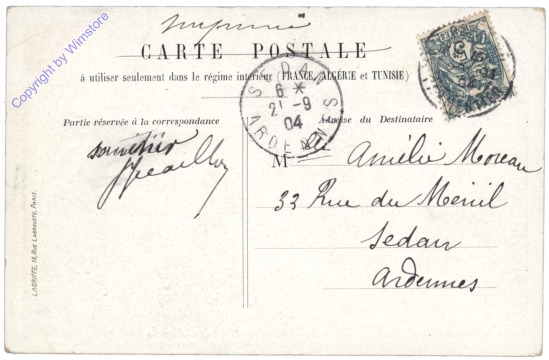 Imprimé
CARTE POSTALE
à utiliser seulement dans le régime intérieur (FRANCE, ALGÉRIE et TUNISIE)
SEDAN
6 *
21 -9
04
ARDENNES
Partie réservée à la correspondance
Adresse du Destinataire
souvenir
Mlle Amélie Moreau
33 Rue du Ménil
Sedan
Ardennes
LAGRIFFE, 18, RUE LABROUSTE, PARIS.
Copyright by Wimstore